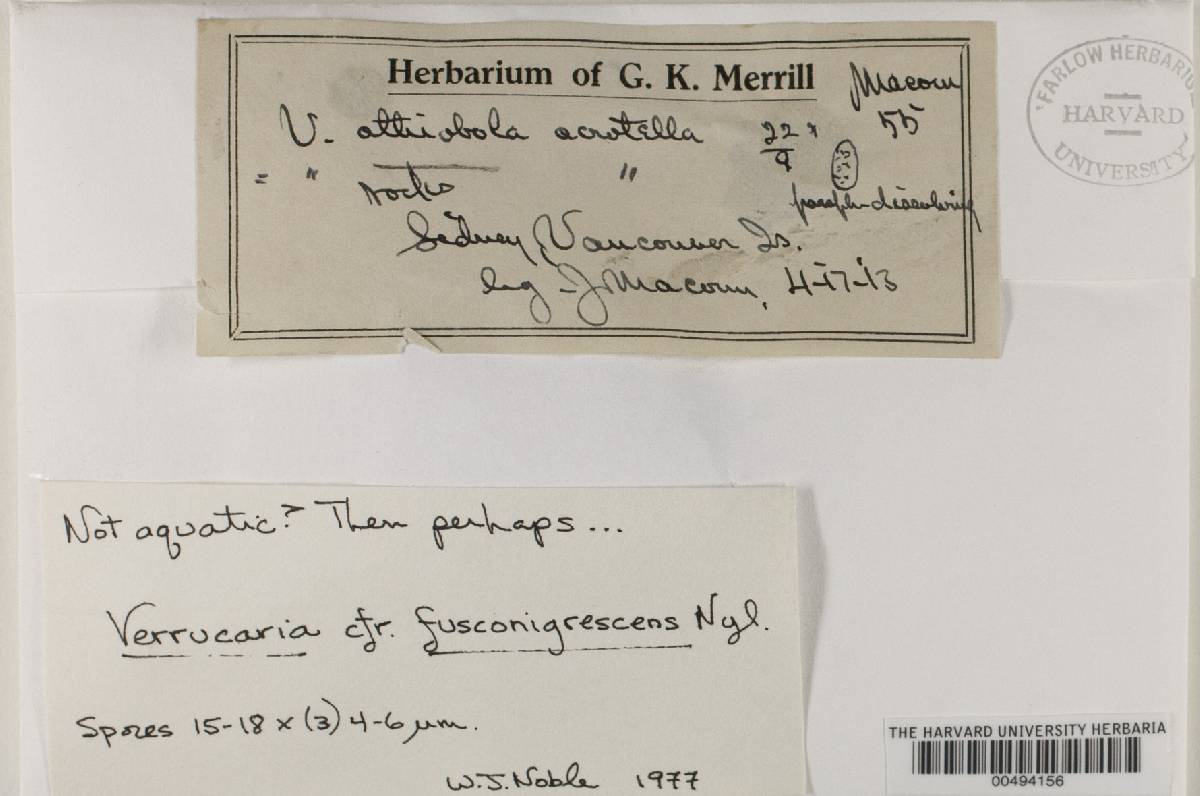 Herbarium of G. K. Merrill
Macoun
55
V. aethiobola acrotella 22/9
= " "
rocks
paraph-dissolving
Sidney, Vancouver Is.
leg - J. Macoun, 4-17-13
FARLOW HERBARIU
HARVARD
UNIVERSITY
Not aquatic? Then perhaps...
Verrucaria cfr. fusconigrescens Nyl.
Spores 15-18 x (3) 4-6 µm.
W.J. Noble 1977
THE HARVARD UNIVERSITY HERBARIA
00494156